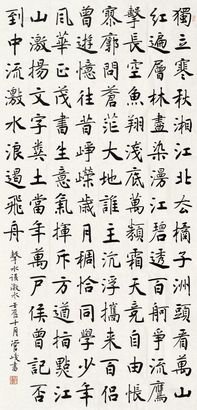 獨立寒秋湘江北去橘子洲頭看萬山
紅遍層林盡染漫江碧透百舸爭流鷹
擊長空魚翔淺底萬類霜天競自由悵
寥廓問蒼茫大地誰主沉浮攜來百侶
曾遊憶往昔崢嶸歲月稠恰同學少年
風華正茂書生意氣揮斥方遒指點江
山激揚文字糞土當年萬戶侯曾記否
到中流激水浪遏飛舟 擊水誤激水 十月 書